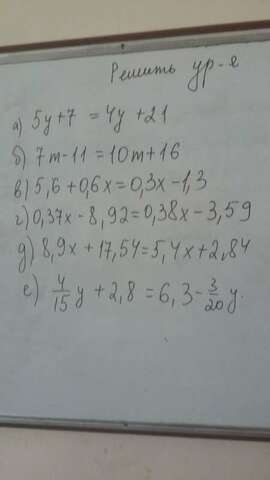 Решить ур-е
а) 5y+7 = 4y +21
б) 7m-11=10m+16
в) 5,6+0,6x=0,3x-1,3
г) 0,37x - 8,92=0,38x - 3,59
д) 8,9x + 17,54=5,4x+2,84
е) 4/15 y + 2,8 = 6,3 - 3/20 y.